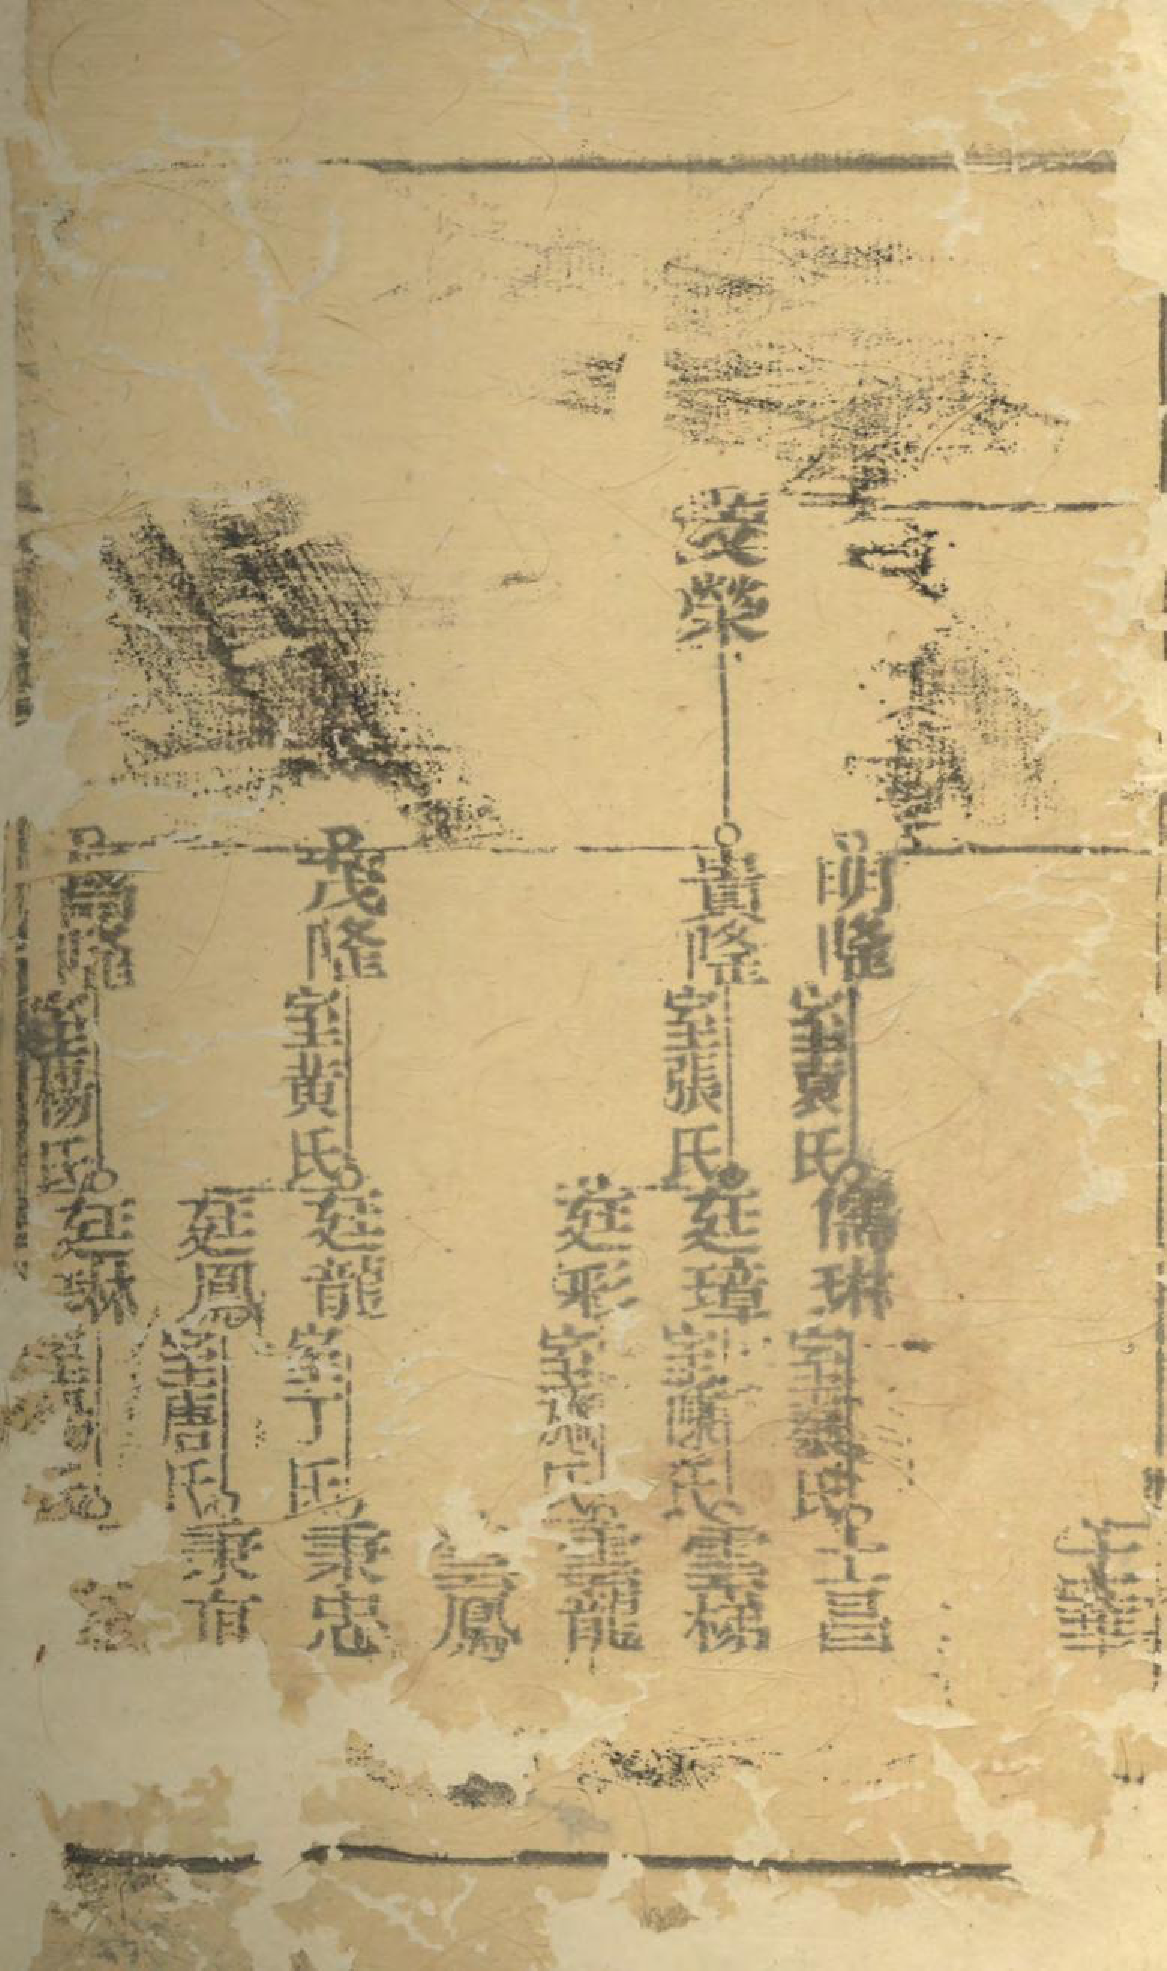 士
明隆
室袁氏
儒琳
室
氏
士昌
榮
貴隆
室張氏
廷璋
室陳氏
雲梯
廷彩
室
氏
雲龍
雲鳳
茂隆
室黃氏
廷龍
室丁氏
秉忠
廷鳳
室唐氏
秉
隆
室楊氏
廷琳